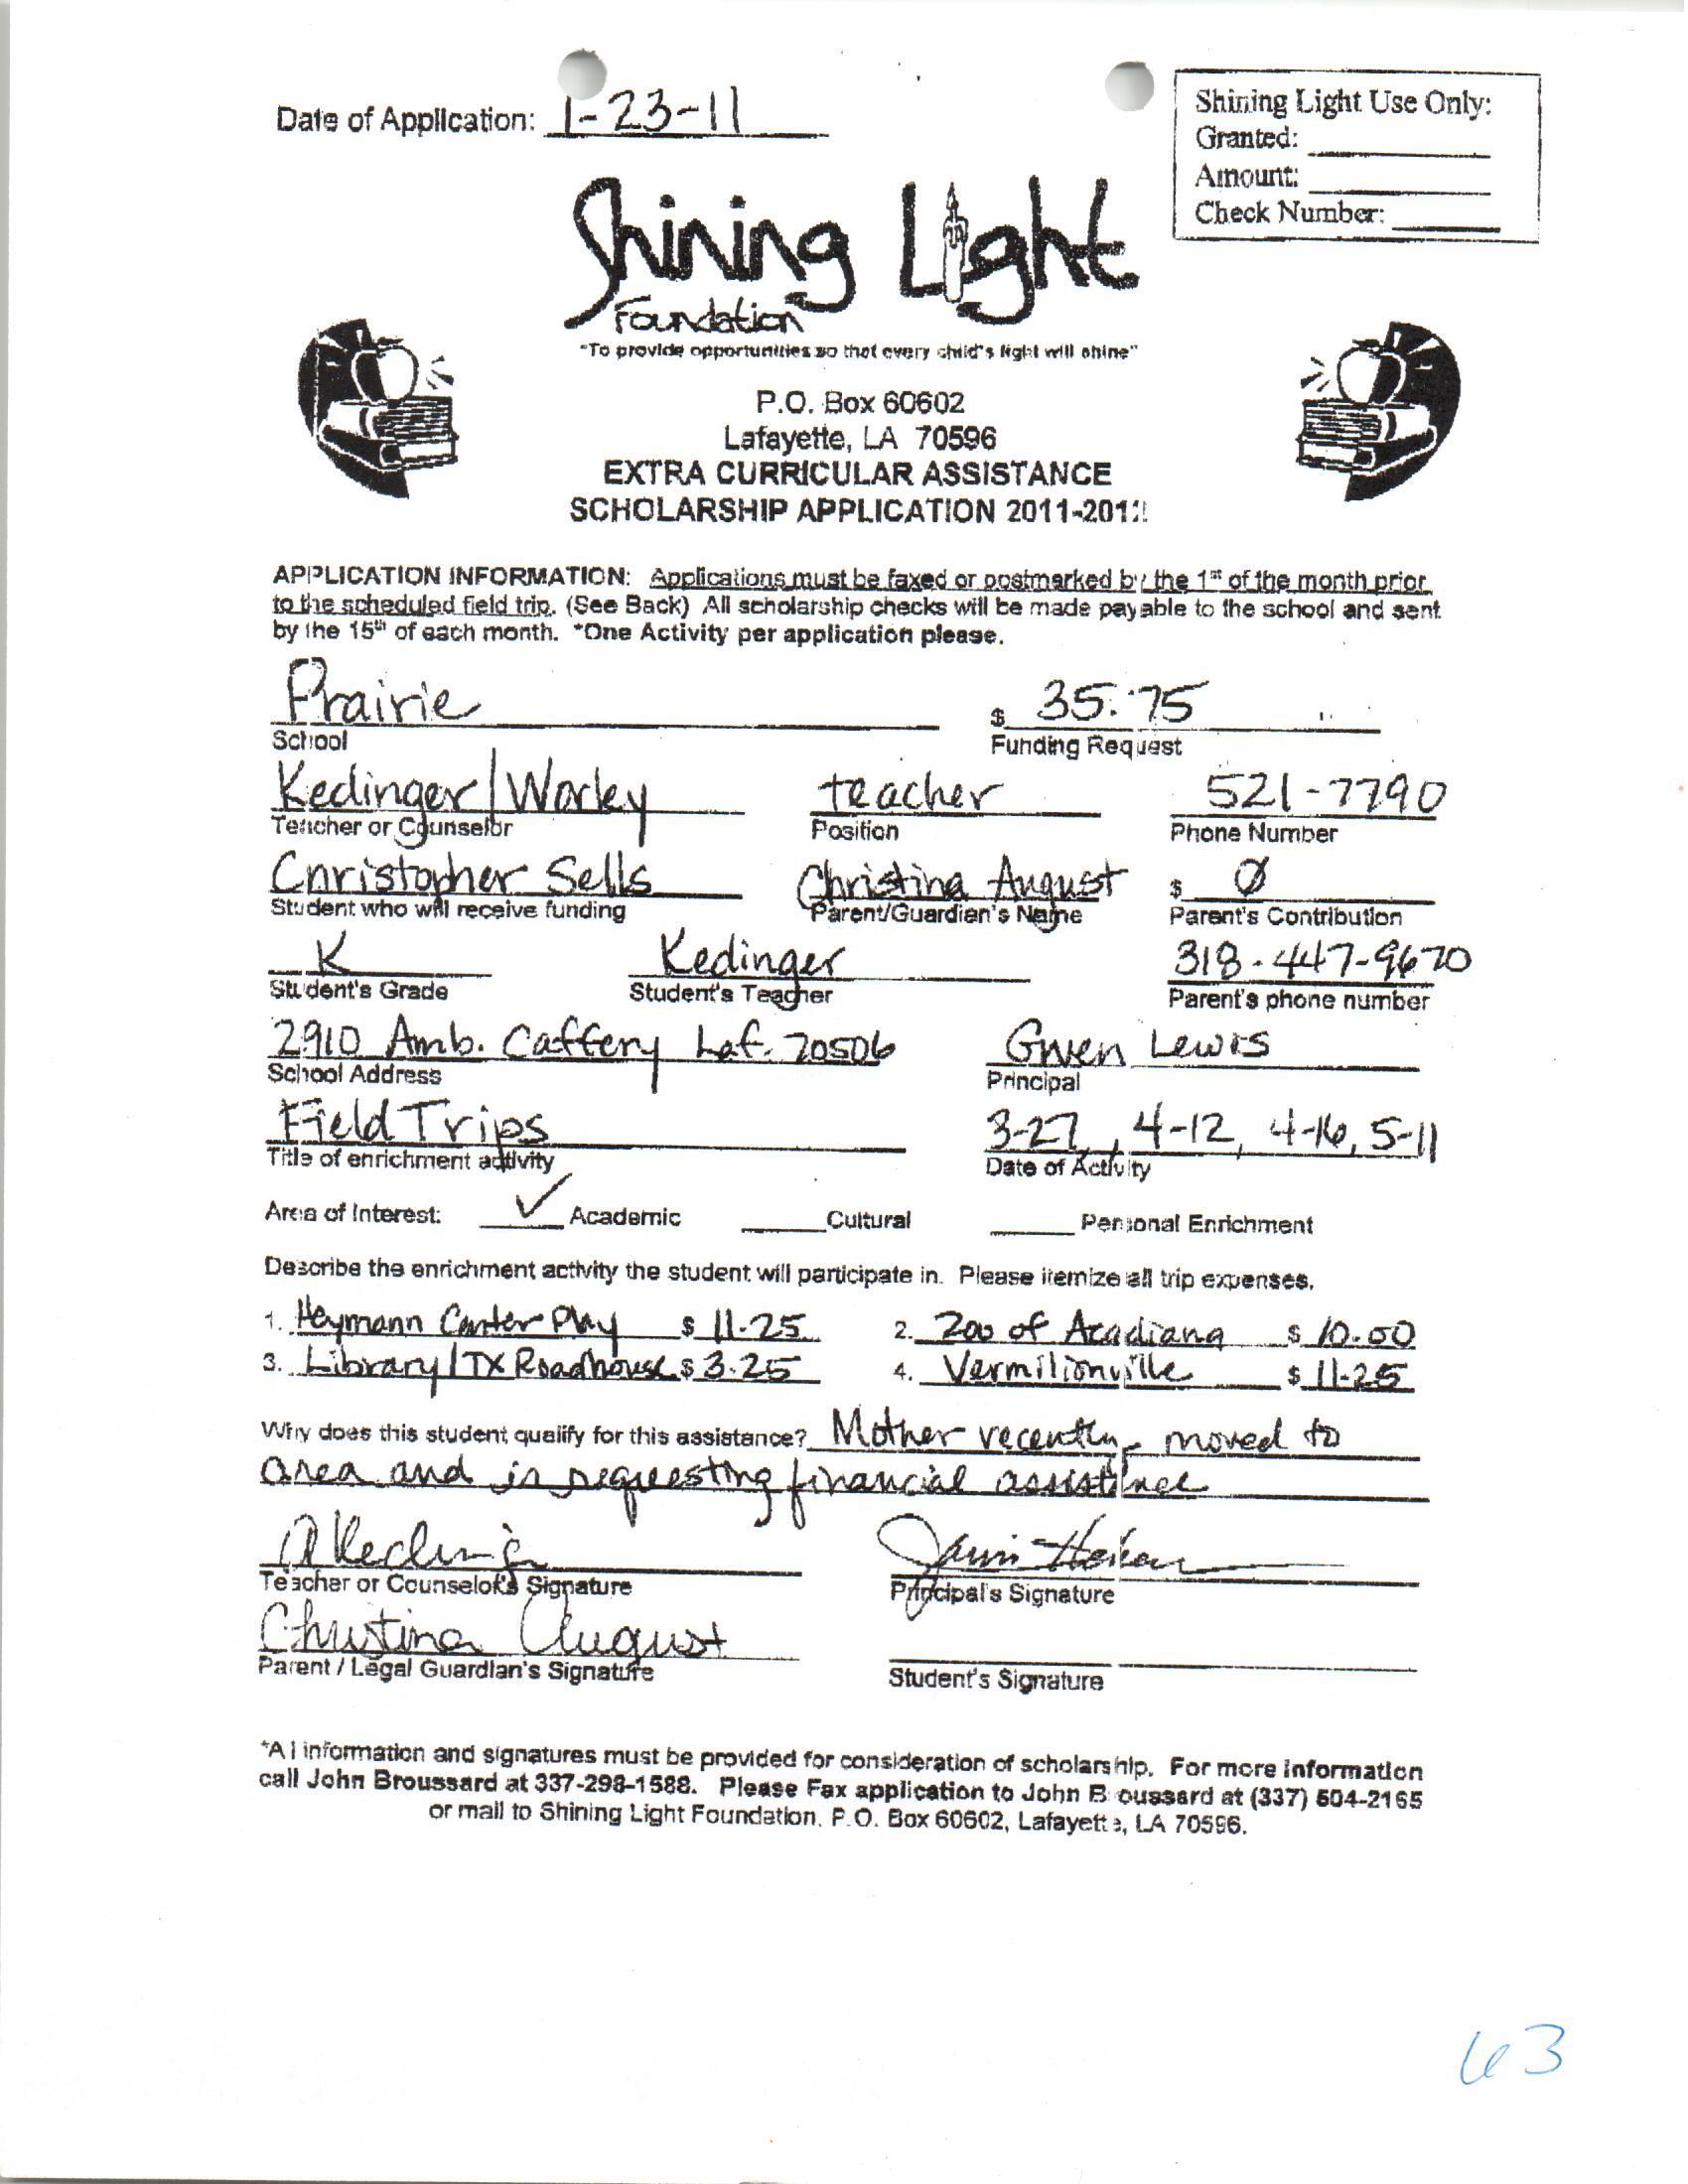 Date of Application: 1-23-11
Shining Light Use Only:
Granted:
Amount:
Check Number:
Shining Light
Foundation
"To provide opportunities so that every child's light will shine"
P.O. Box 60602
Lafayette, LA 70596
EXTRA CURRICULAR ASSISTANCE
SCHOLARSHIP APPLICATION 2011-2012
APPLICATION INFORMATION: Applications must be faxed or postmarked by the 1st of the month prior
to the scheduled field trip. (See Back) All scholarship checks will be made payable to the school and sent
by the 15th of each month. *One Activity per application please.
Prairie $ 35.75
School Funding Request
Kedinger/Worley teacher 521-7790
Teacher or Counselor Position Phone Number
Christopher Sells Christina August $ Ø
Student who will receive funding Parent/Guardian's Name Parent's Contribution
K Kedinger 318-447-9670
Student's Grade Student's Teacher Parent's phone number
2910 Amb. Caffery Laf. 70506 Gwen Lewis
School Address Principal
Field Trips 3-27, 4-12, 4-16, 5-11
Title of enrichment activity Date of Activity
Area of Interest: ✓ Academic Cultural Personal Enrichment
Describe the enrichment activity the student will participate in. Please itemize all trip expenses.
1. Heymann Center Play $ 11.25 2. Zoo of Acadiana $ 10.00
3. Library/TX Roadhouse $ 3.25 4. Vermilionville $ 11.25
Why does this student qualify for this assistance? Mother recently moved to
area and is requesting financial assistance
Teacher or Counselor's Signature Principal's Signature
Christina August
Parent / Legal Guardian's Signature Student's Signature
*All information and signatures must be provided for consideration of scholarship. For more information
call John Broussard at 337-298-1588. Please Fax application to John Broussard at (337) 504-2165
or mail to Shining Light Foundation, P.O. Box 60602, Lafayette, LA 70596.
63